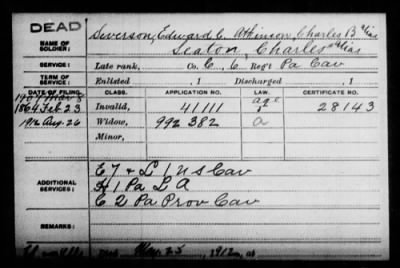 DEAD
NAME OF SOLDIER: Severson, Edward C. Atkinson, Charles B alias
Seaton, Charles alias
SERVICE: Late rank, Co. C, 6 Reg't Pa Cav
TERM OF SERVICE: Enlisted , 1 Discharged , 1
DATE OF FILING. CLASS. APPLICATION NO. LAW. CERTIFICATE NO.
Mar 8 age
1864 Feb. 23 Invalid, 41111 28143
1912 Aug. 26 Widow, 992 382 a
Minor,
ADDITIONAL SERVICES: E 7 & L 1 U S Cav
H 1 Pa L A
E 2 Pa Prov Cav
REMARKS:
1912, at